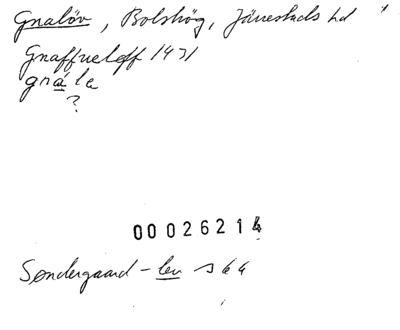 Gnalöv, Bolshög, Järrestads hd
Gnaffueleff 1471
gnala
?
00026214
Søndergaard - lev s 64